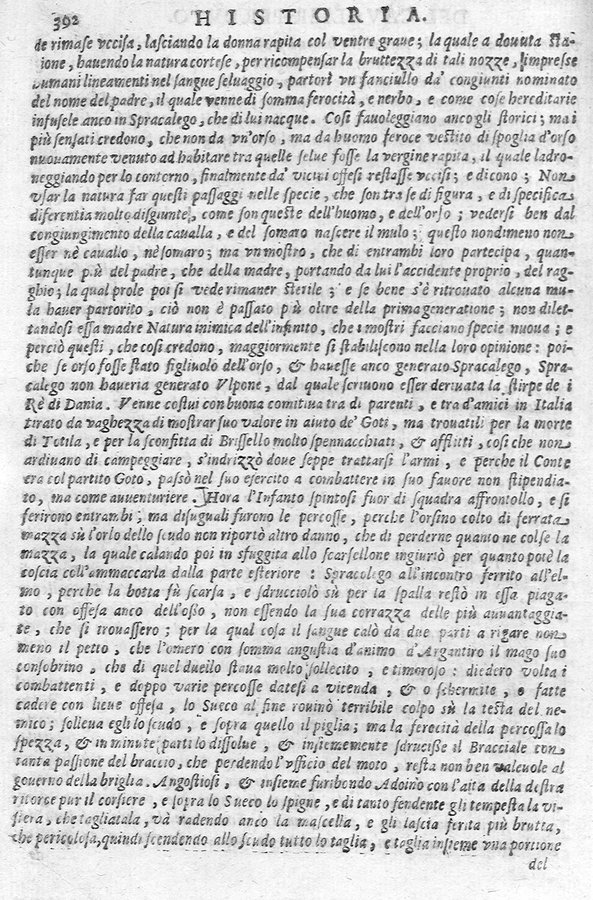 392 HISTORIA.
de rimase vccisa, lasciando la donna rapita col ventre graue; la quale a douuta sta-
ione, hauendo la natura cortese, per ricompensar la bruttezza di tali nozze, impresse
humani lineamenti nel sangue seluaggio, partorì vn fanciullo da' congiunti nominato
del nome del padre, il quale venne di somma ferocità, e nerbo, e come cose hereditarie
infusele anco in Spracalego, che di lui nacque. Così fauoleggiano anco gli storici; ma i
più sensati credono, che non da vn'orso, ma da huomo feroce vestito di spoglia d'orso
nuouamente venuto ad habitare tra quelle selue fosse la vergine rapita, il quale ladro-
neggiando per lo contorno, finalmente da' vicini offesi restasse vccisi; e dicono; Non
vsar la natura far questi passaggi nelle specie, che son tra se di figura, e di specifica
diferentia molto disgiunte, come son queste dell'huomo, e dell'orso; vedersi ben dal
congiungimento della caualla, e del somaro nascere il mulo; questo nondimeno non
esser nè cauallo, nè somaro; ma vn mostro, che di entrambi loro partecipa, quan-
tunque più del padre, che della madre, portando da lui l'accidente proprio, del rag-
ghio; la qual prole poi si vede rimaner sterile; e se bene s'è ritrouato alcuna mu-
la hauer partorito, ciò non è passato più oltre della prima generatione; non dilet-
tandosi essa madre Natura inimica dell'infinito, che i mostri facciano specie nuoua; e
perciò questi, che così credono, maggiormente si stabiliscono nella loro opinione: poi-
che se orso fosse stato figliuolo dell'orso, & hauesse anco generato Spracalego, Spra-
calego non haueria generato Vlpone, dal quale scriuono esser deriuata la stirpe de i
Rè di Dania. Venne costui con buona comitiua tra di parenti, e tra d'amici in Italia
tirato da vaghezza di mostrar suo valore in aiuto de' Goti, ma trouatili per la morte
di Totila, e per la sconfitta di Brissello molto spennacchiati, & afflitti, così che non
ardiuano di campeggiare, s'indrizzò doue seppe trattarsi l'armi, e perche il Conte
era col partito Goto, passò nel suo esercito a combattere in suo fauore non stipendia-
to, ma come auuenturiere. Hora l'Infanto spintosi fuor di squadra affrontollo, e si
ferirono entrambi; ma disuguali furono le percosse, perche l'orsino colto di ferrata
mazza sù l'orlo dello scudo non riportò altro danno, che di perderne quanto ne colse la
mazza, la quale calando poi in sfuggita allo scarsellone ingiuriò per quanto potè la
coscia coll'ammaccarla dalla parte esteriore: Spracolego all'incontro ferrito all'el-
mo, perche la botta fù scarsa, e sdrucciolò sù per la spalla restò in essa piaga-
to con offesa anco dell'osso, non essendo la sua corrazza delle più auuantaggia-
te, che si trouassero; per la qual cosa il sangue calò da due parti a rigare non
meno il petto, che l'omero con somma angustia d'animo d'Argantiro il mago suo
consobrino, che di quel duello staua molto sollecito, e timoroso: diedero volta i
combattenti, e doppo varie percosse datesi a vicenda, & o schermite, o fatte
cadere con lieue offesa, lo Sueco al fine rouinò terribile colpo sù la testa del ne-
mico; solleua egli lo scudo, e sopra quello il piglia; ma la ferocità della percossa lo
spezza, & in minute parti lo dissolue, & insiememente sdruciße il Bracciale con
tanta passione del braccio, che perdendo l'vfficio del moto, resta non ben valeuole al
gouerno della briglia. Angostiosi, & insieme furibondo Adoino con l'aita della destra
ritorce pur il corsiere, e sopra lo Sueco lo spigne, e di tanto fendente gli tempesta la vi-
siera, che tagliatala, và radendo anco la mascella, e gli lascia ferita più brutta,
che pericolosa, quindi scendendo allo scudo tutto lo taglia, e taglia insieme vna portione
del